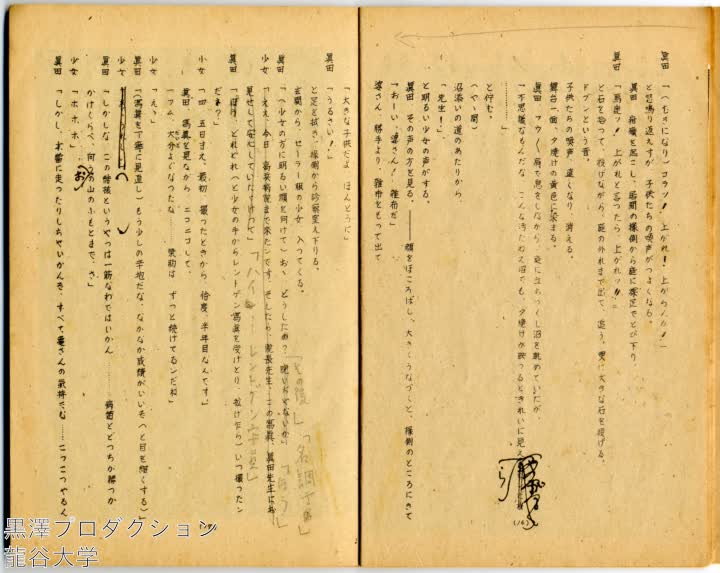 眞田「(ムキになり)コラッ! 上がれ! 上がらんか!」
と怒鳴り返えすが、子供たちの喚声がつよくなる。
眞田、身體を起こし、居間の縁側から庭に裸足でとび下り、
眞田「馬鹿ッ! 上がれと言ったら、上がれッ!!」
と石を拾って、投げながら、庭の外れまで出て、追う。更に大きな石を投げる。
ドブンという音。
子供たちの喚声、遠くなり、消える。
舞台一面、夕焼けの黄色に染まる。
眞田「フウ(肩で息をしながら、庭に立ちつくし沼を眺めていたが、
「不思議なもんだな、こんな汚たねえ沼でも、夕焼けが映つるときれいに見え
と佇む。
(やゝ間)
沼沿いの道のあたりから、
「先生!」
と明るい少女の声がする。
眞田、その声の方を見る。――顔をほころばし、大きくうなづくと、縁側のところにきて
「おーい、婆さん! 雑布だ」
婆さん、勝手より、雑布をもって出て
(16)
「大きな子供だよ、ほんとうに」
眞田「うるさい!」
と足を拭き、縁側から診察室え下りる。
玄関から、セーラー服の少女、入ってくる。
眞田「(少女の方に明るい顔を向けて)おゝ、どうしたい?
少女「ええ、今日、高泉病院まで来たンです。そしたら、院長先生、この寫眞、眞田先生にお
見せして、安心していただけって」
眞田「ほう、どれどれ(と少女の手からレントゲン寫眞を受けとり、
いつ撮ったンだぁっ?」
少女「四、五日まえ、最初、撮ったときから、恰度、半年目なんです」
眞田、寫眞を見ながら、ニコニコして、
「フム、大分よくなったな……栄助は、ずっと続けてるンだね」
少女「えゝ」
眞田「(寫眞を丁寧に見直し)もう少しの辛抱だな、なかなか成績がいいぞ(と目を細くする)」
少女
眞田「しかしな、この結核というやつは一筋なわではいかん……病菌とどっちが勝つか
かけくらべ、向うの山のふもとまで、さ」
少女「ホホホ」
眞田「しかし、木當に走ったりしちゃいかんぞ、すべて婆さんの気持でな……コツコツやるん
「ハイ レントゲン写真」
「名調子ね」
「ほう」
黒澤プロダクション
龍谷大学